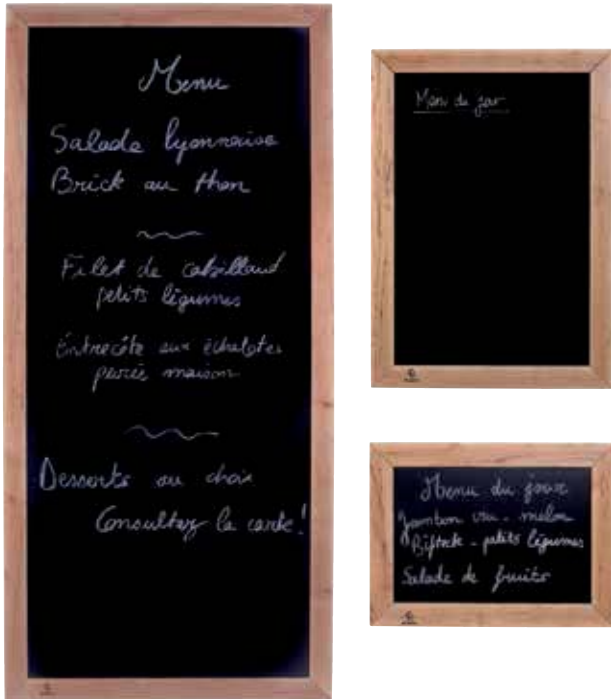 Menu
Salade lyonnaise
Brick au thon
Filet de cabillaud
petits légumes
Entrecôte aux échalotes
purée maison
Desserts au choix
Consultez la carte!
Menu du jour
Menu du jour
Jambon cru - melon
Bifteck - petits légumes
Salade de fruits